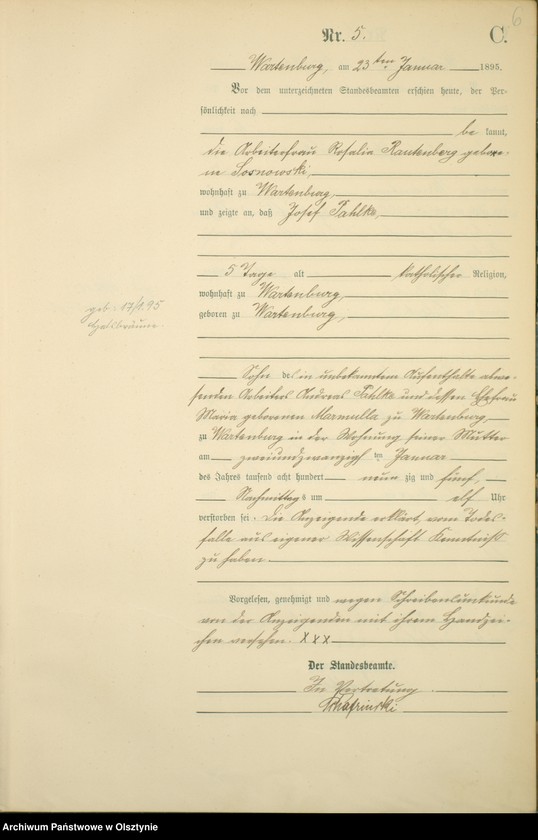 6
Nr. 5. C.
Wartenburg, am 23ten Januar 1895.
Vor dem unterzeichneten Standesbeamten erschien heute, der Per-
sönlichkeit nach
be kannt,
die Arbeiterfrau Rosalia Rautenberg gebore-
ne Sosnowski,
wohnhaft zu Wartenburg,
und zeigte an, daß Josef Pahlke,
5 Tage alt katholischer Religion,
wohnhaft zu Wartenburg,
geboren zu Wartenburg,
geb. 17/1.95
Halsbräune.
Sohn des in unbekanntem Aufenthalte abwe-
senden Arbeiters Andreas Pahlke und dessen Ehefrau
Maria geborenen Marmulla zu Wartenburg,
zu Wartenburg in der Wohnung seiner Mutter
am zweiundzwanzigsten Januar
des Jahres tausend acht hundert neun zig und fünf,
Nachmittags um elf Uhr
verstorben sei. Die Anzeigende erklärt, vom Todes-
falle aus eigener Wissenschaft Kenntniß
zu haben.
Vorgelesen, genehmigt und wegen Schreibensunkunde
von der Anzeigenden mit ihrem Handzei-
chen versehen. XXX
Der Standesbeamte.
In Vertretung
Archiwum Państwowe w Olsztynie